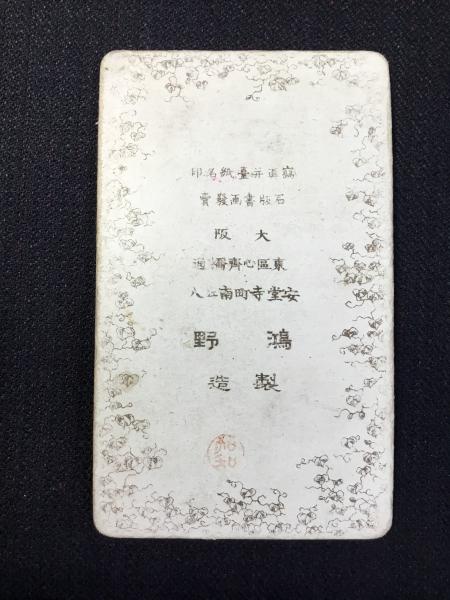 寫真并臺紙名印
石版書画發賣
大阪
東區心齊橋通
安堂寺町南江入
鴻野
製造